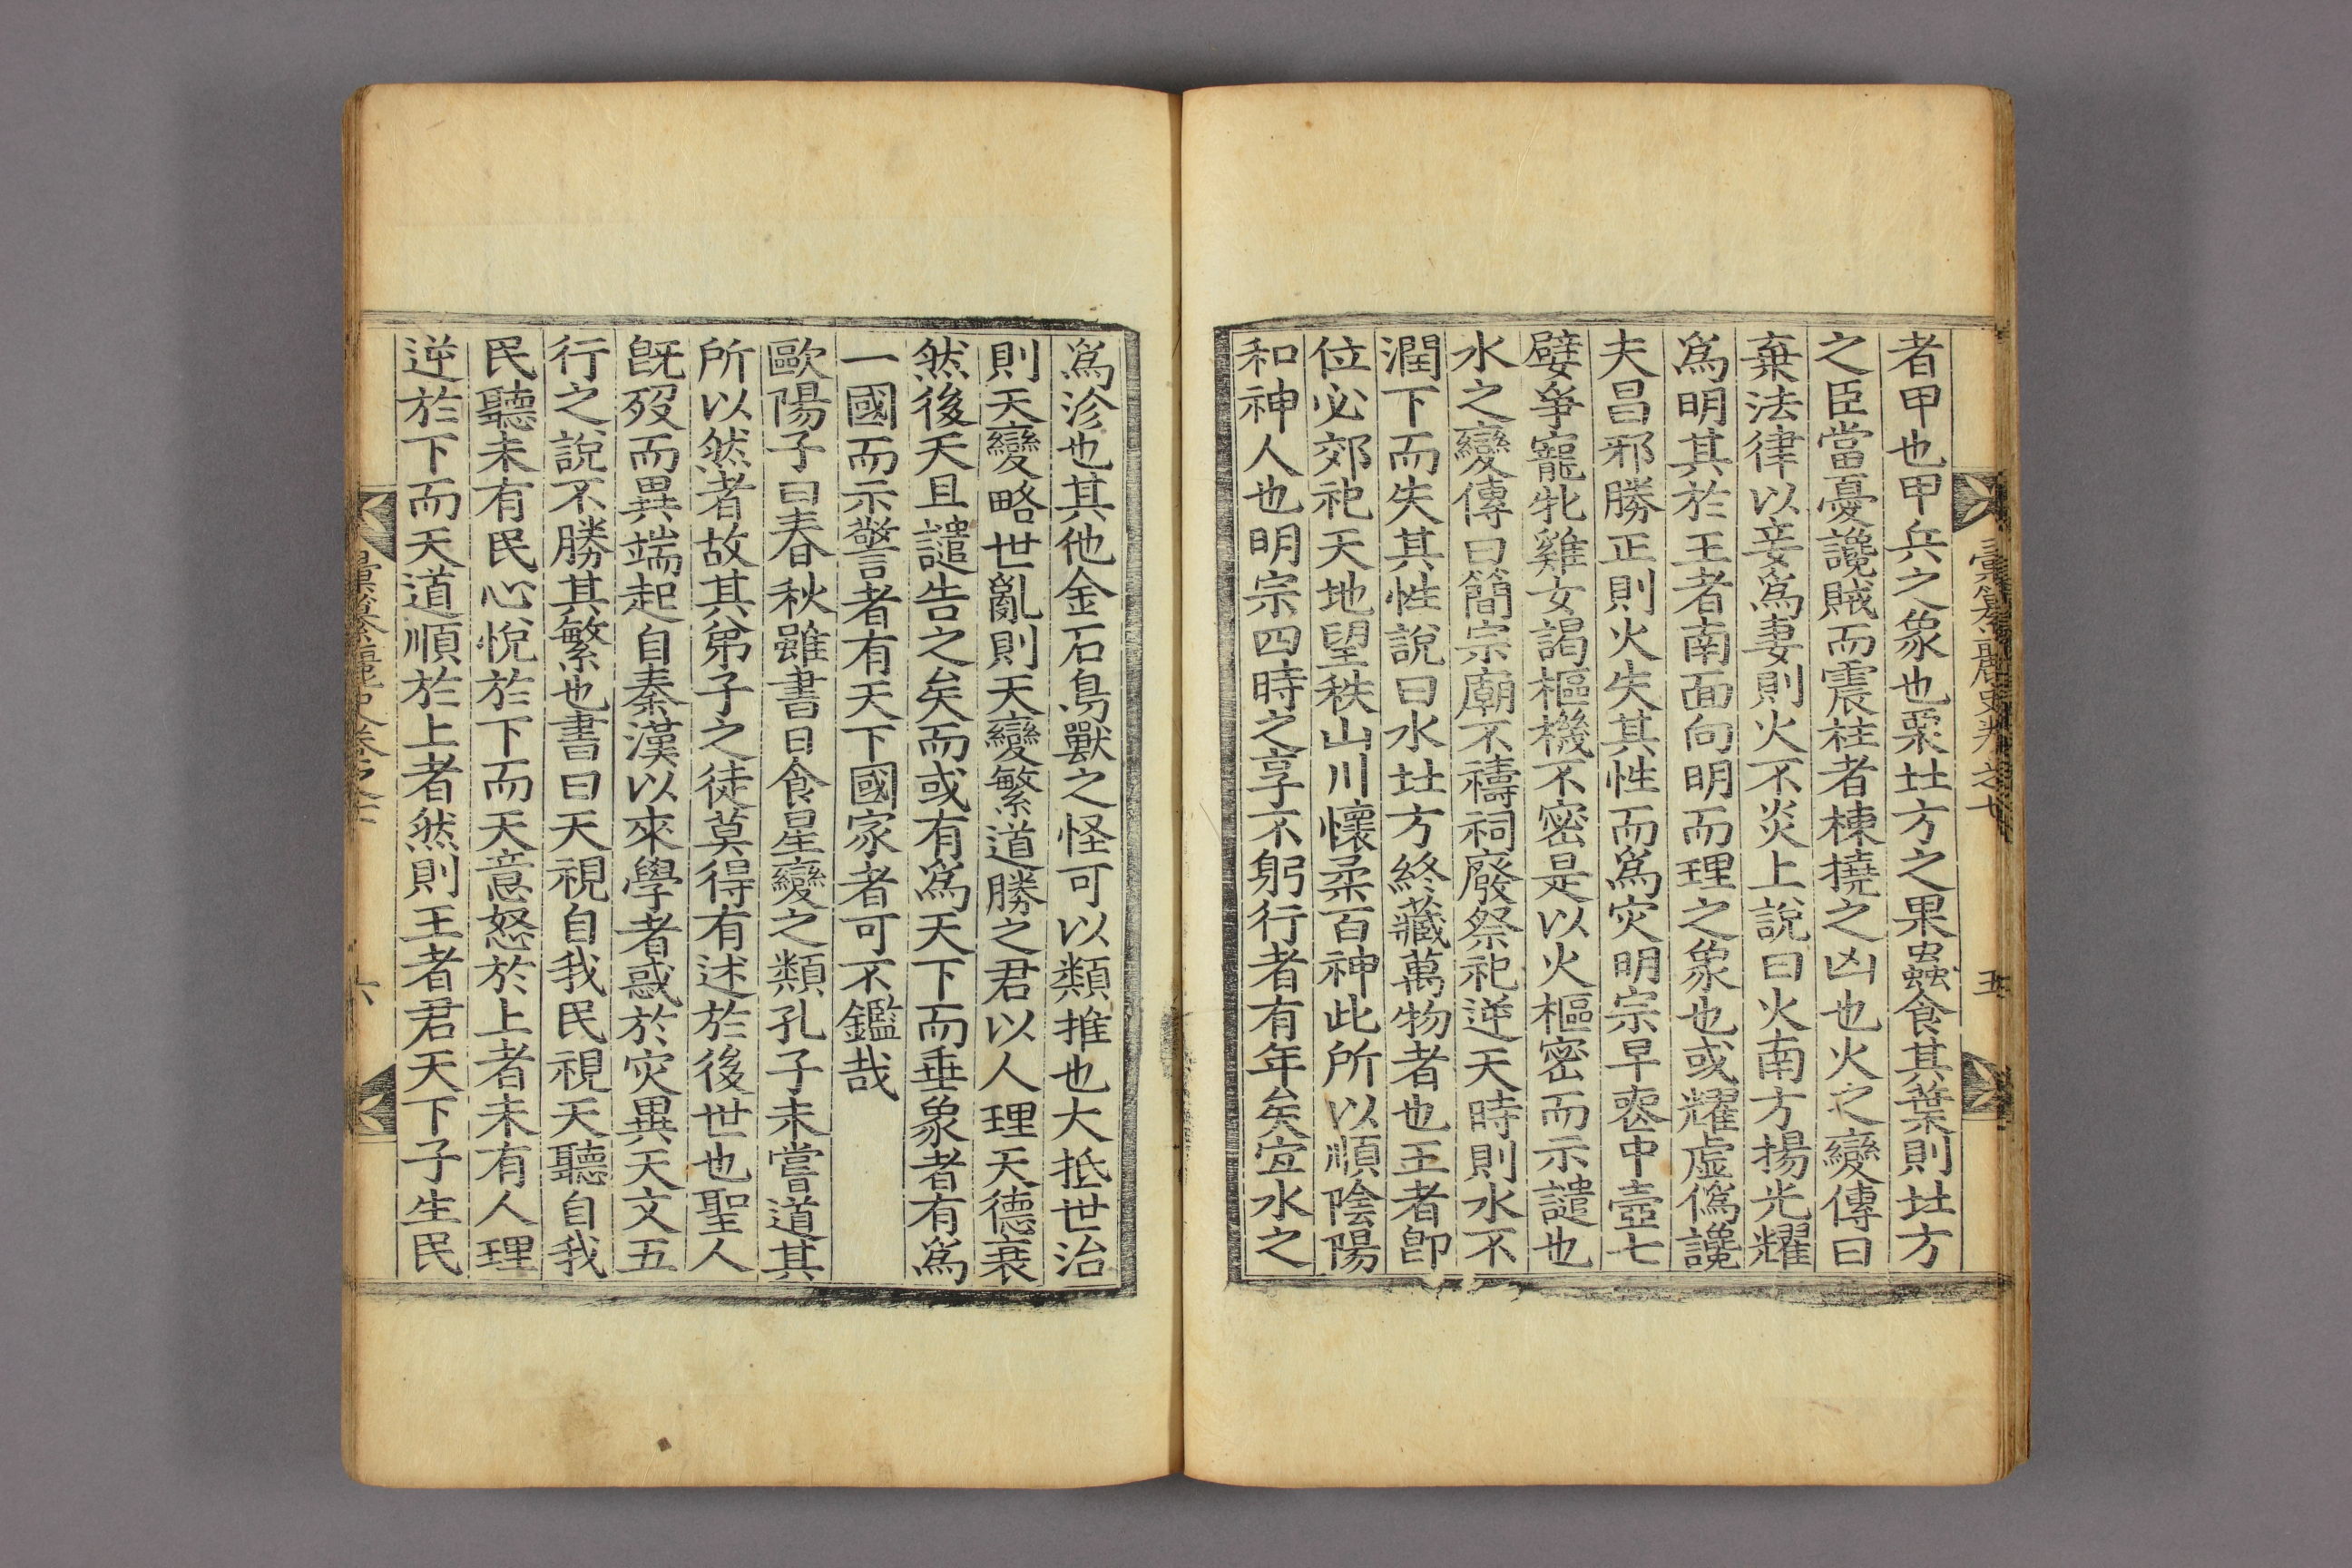 彙纂麗史卷之十
五
者甲也甲兵之象也栗北方之果蟲食其葉則北方
之臣當憂讒賊而震柱者棟撓之凶也火之變傳曰
棄法律以妾爲妻則火不炎上說曰火南方揚光耀
爲明其於王者南面向明而理之象也或耀虛僞讒
夫昌邪勝正則火失其性而爲灾明宗早喪中壼七
嬖爭寵牝雞女謁樞機不密是以火樞密而示譴也
水之變傳曰簡宗廟不禱祠廢祭祀逆天時則水不
潤下而失其性說曰水北方終藏萬物者也王者卽
位必郊祀天地望秩山川懷柔百神此所以順陰陽
和神人也明宗四時之享不躬行者有年矣宜水之
爲沴也其他金石鳥獸之怪可以類推也大抵世治
則天變略世亂則天變繁道勝之君以人理天德衰
然後天且譴告之矣而或有爲天下而垂象者有爲
一國而示警者有天下國家者可不鑑哉
歐陽子曰春秋雖書日食星變之類孔子未嘗道其
所以然者故其弟子之徒莫得有述於後世也聖人
旣歿而異端起自秦漢以來學者惑於灾異天文五
行之說不勝其繁也書曰天視自我民視天聽自我
民聽未有民心悅於下而天意怒於上者未有人理
逆於下而天道順於上者然則王者君天下子生民
六